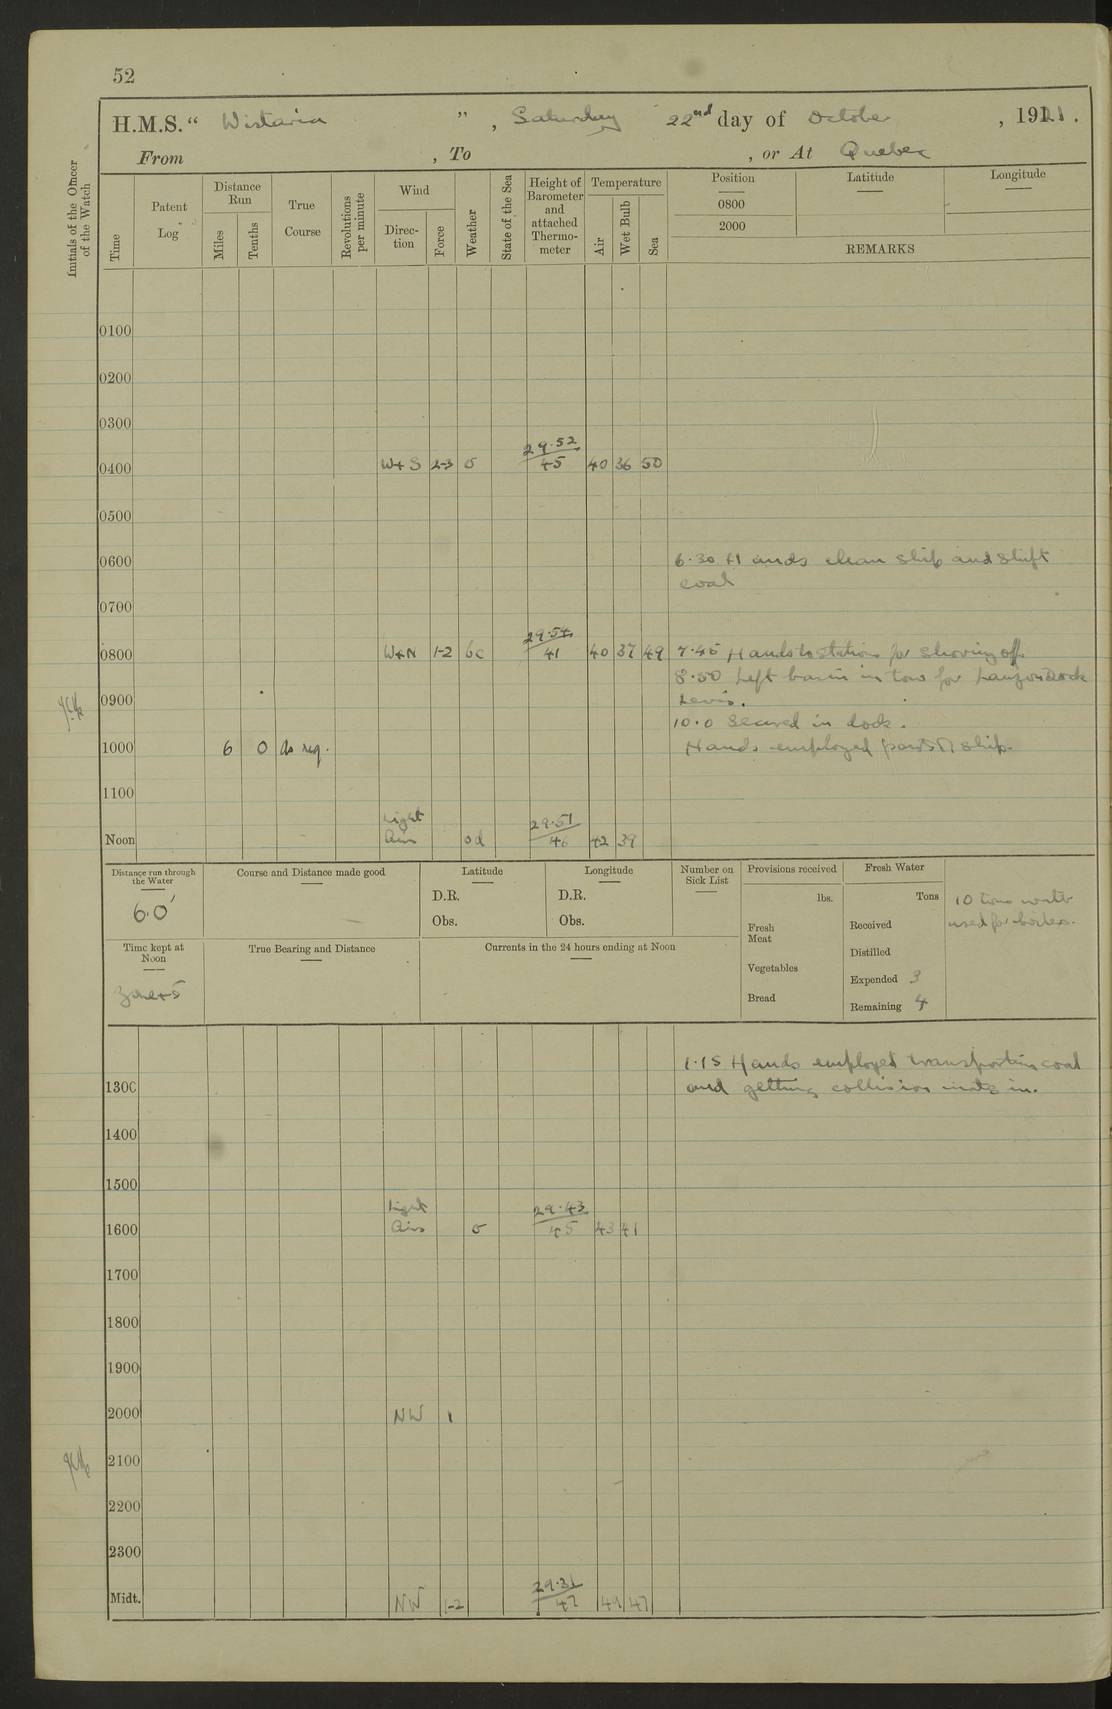 52
H.M.S. “ Wistaria ” , Saturday 22nd day of October , 1921.
From , To , or At Quebec
Initials of the Officer of the Watch
Time
Patent Log
Distance Run
Miles
Tenths
True Course
Revolutions per minute
Wind
Direc-tion
Force
Weather
State of the Sea
Height of Barometer and attached Thermo-meter
Temperature
Air
Wet Bulb
Sea
Position
Latitude
Longitude
0800
2000
REMARKS
0100
0200
0300
29.52
0400 W+S 2-3 o 45 40 36 50
0500
0600 6.30 Hands clean ship and shift
coal
0700
29.54
0800 W+N 1-2 bc 41 40 37 49 7.45 Hands to stations for shoving off
8.50 Left basin in tow for Lauzon Dock
0900 Levis.
10.0 Secured in dock.
1000 6 0 as req. Hands employed parts of ship.
1100
Light 29.51
Noon Airs od 46 42 39
Distance run through the Water
6.0'
Course and Distance made good
Latitude
D.R.
Obs.
Longitude
D.R.
Obs.
Number on Sick List
Provisions received
lbs.
Fresh Meat
Vegetables
Bread
Fresh Water
Tons
Received
Distilled
Expended 3
Remaining 4
10 tons water
used for boilers.
Time kept at Noon
Zone+5
True Bearing and Distance
Currents in the 24 hours ending at Noon
1.15 Hands employed transporting coal
1300 and getting collision mats in.
1400
1500
Light 29.43
1600 Airs o 45 43 41
1700
1800
1900
2000 NW 1
2100
2200
2300
29.31
Midt. NW 1-2 47